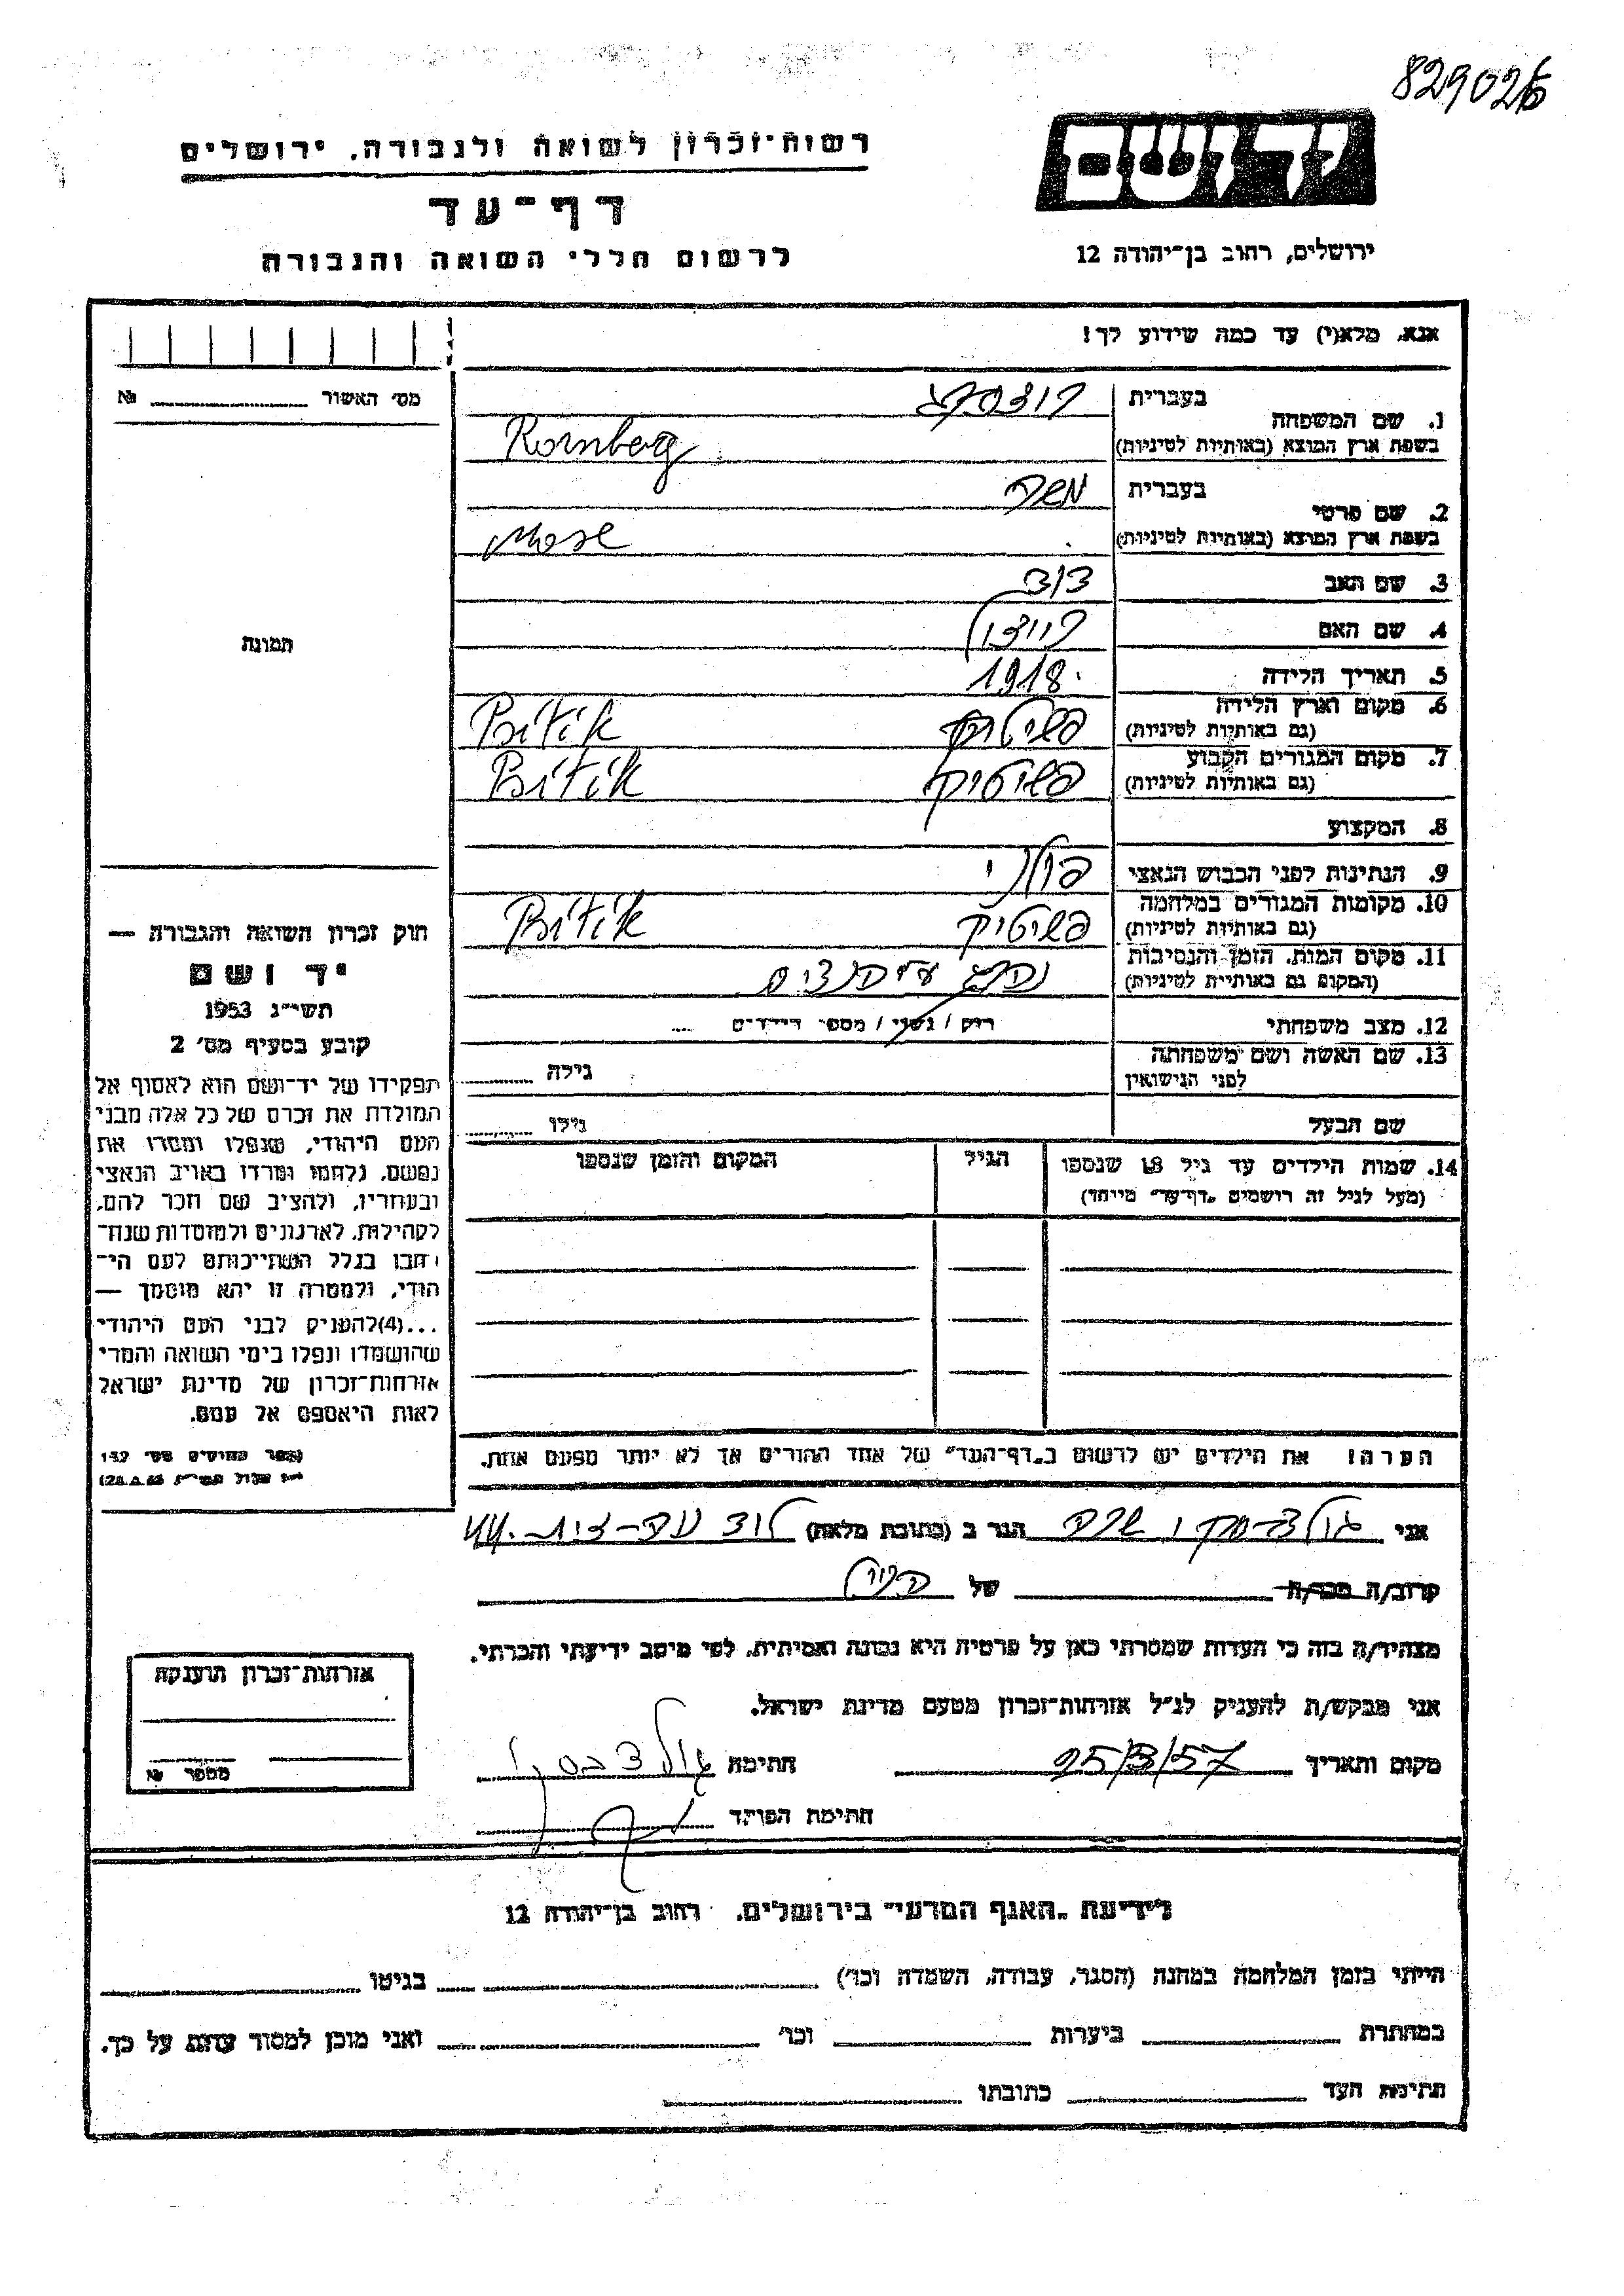 829026
רשות-זכרון לשואה ולגבורה, ירושלים
יד ושם
דף-עד
ירושלים, רחוב בן-יהודה 12
לרשום חללי השואה והגבורה
אנא, מלא(י) עד כמה שידוע לך!
מס' האשור № 
1. שם המשפחה
בעברית
בשפת ארץ המוצא (באותיות לטיניות) Rornberg
2. שם פרטי
בעברית משה
בשפת ארץ המוצא (באותיות לטיניות) Mose
3. שם האב דוד
4. שם האם
5. תאריך הלידה 1918
6. מקום וארץ הלידה
(גם באותיות לטיניות) פשיטיק Psitik
7. מקום המגורים הקבוע
(גם באותיות לטיניות) פשיטיק Psitik
8. המקצוע
9. הנתינות לפני הכבוש הנאצי פולני
10. מקומות המגורים במלחמה
(גם באותיות לטיניות) פשיטיק Psitik
11. מקום המות, הזמן והנסיבות
(המקום גם באותיות לטיניות) נהרג
12. מצב משפחתי רווק / נשוי / מספר הילדים
13. שם האשה ושם משפחתה
לפני הנישואין גילה
שם הבעל גילו
14. שמות הילדים עד גיל 18 שנספו
(מעל לגיל זה רושמים "דף-עד" מיוחד)
הגיל
המקום והזמן שנספו
הערה! את הילדים יש לרשום ב"דף-העד" של אחד ההורים אך לא יותר מפעם אחת.
תמונה
חוק זכרון השואה והגבורה —
יד ושם
תשי"ג 1953
קובע בסעיף מס' 2
תפקידו של יד-ושם הוא לאסוף אל
המולדת את זכרם של כל אלה מבני
העם היהודי, שנפלו ומסרו את
נפשם, נלחמו ומרדו באויב הנאצי
ובעוזריו, ולהציב שם וזכר להם,
לקהילות, לארגונים ולמוסדות שנח-
רבו בגלל השתייכותם לעם הי-
הודי, ולמטרה זו יהא מוסמך —
...(4)להעניק לבני העם היהודי
שהושמדו ונפלו בימי השואה והמרי
אזרחות-זכרון של מדינת ישראל
לאות היאספם אל עמם.
אני שרה הגר ב (כתובת מלאה) לוד
קרוב/ה מכר/ה של
מצהיר/ה בזה כי העדות שמסרתי כאן על פרטיה היא נכונה ואמיתית, לפי מיטב ידיעתי והכרתי.
אני מבקש/ת להעניק לנ"ל אזרחות-זכרון מטעם מדינת ישראל.
מקום ותאריך 25/3/57 חתימה
חתימת הפוקד
אזרחות-זכרון הוענקה
מספר №
לידיעת "האגף המדעי" בירושלים, רחוב בן-יהודה 12
הייתי בזמן המלחמה במחנה (הסגר, עבודה, השמדה וכו') בגיטו
במחתרת ביערות וכו' ואני מוכן למסור עדות על כך.
חתימת העד כתובתו